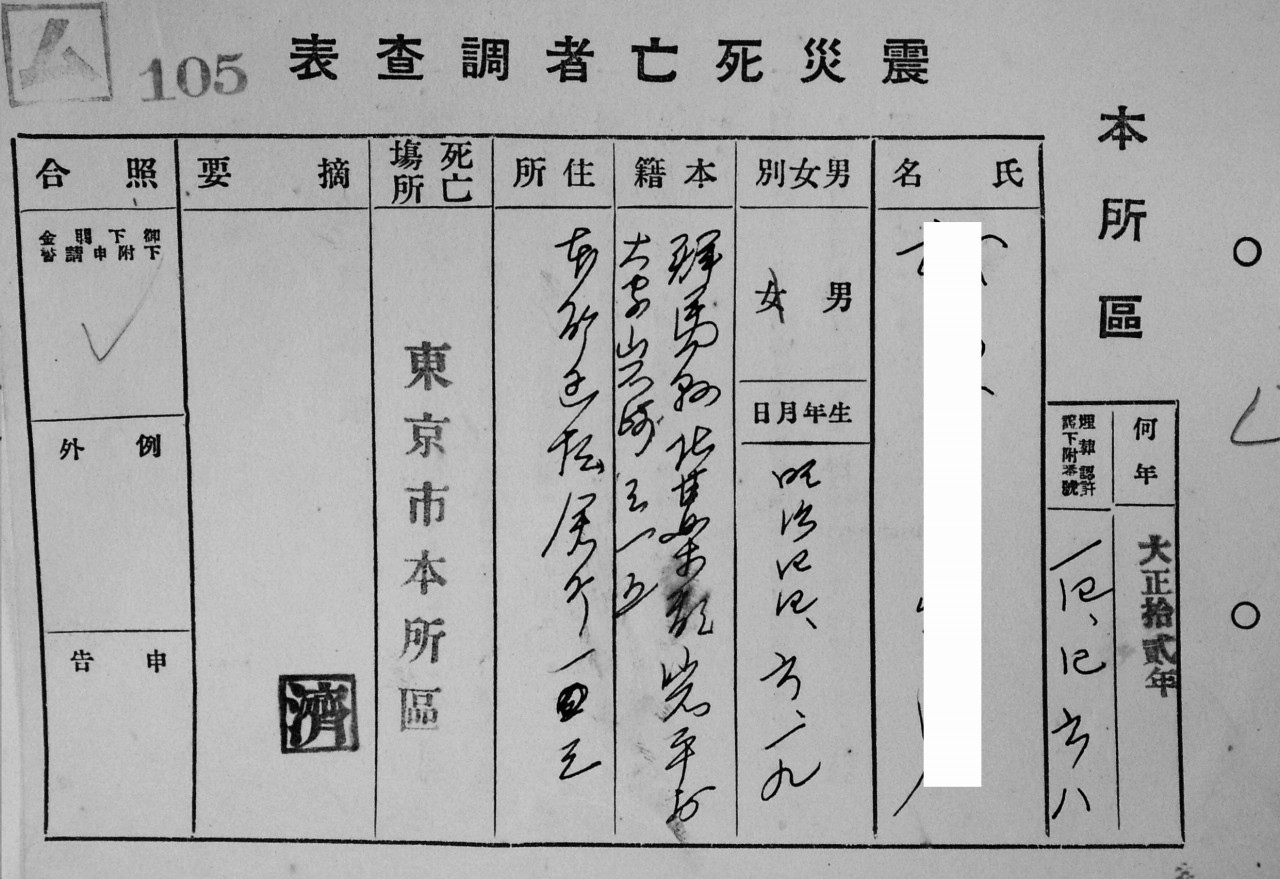 ム
105
震災死亡者調査表
本所區
何年
大正拾貳年
埋葬認許
證下附番號
一四、四六八
氏名
男女別
男
女
生年月日
明治四四、六、一九
本籍
群馬縣北甘樂郡岩平村
大字岩崎三一五
住所
本所區松倉町一四三
死亡
場所
東京市本所區
摘要
濟
照合
御下賜金
下附申請書
例外
申告